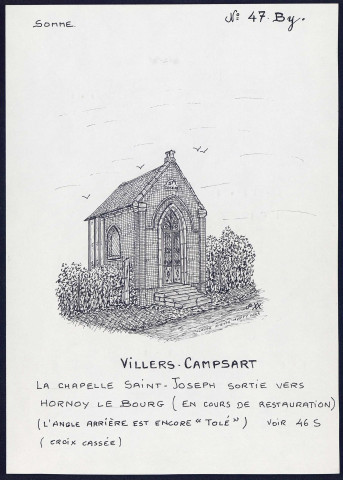 SOMME
N° 47 By.
VILLERS-CAMPSART
LA CHAPELLE SAINT-JOSEPH SORTIE VERS
HORNOY LE BOURG (EN COURS DE RESTAURATION)
(L'ANGLE ARRIÈRE EST ENCORE "TOLÉ") VOIR 46 S
(CROIX CASSÉE)